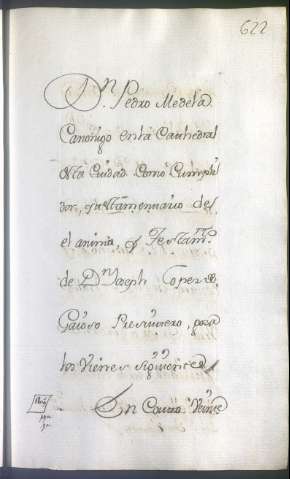 622
Dn. Pedro Medela
Canonigo en la Cathedral
de la Ciudad Como Cumpli
dor, y testamentario del
el anima, y Testamto.
de Dn Joseph Lopez
Gaioso Presvitero, posee
los vienes siguientes
En Couto Veinte